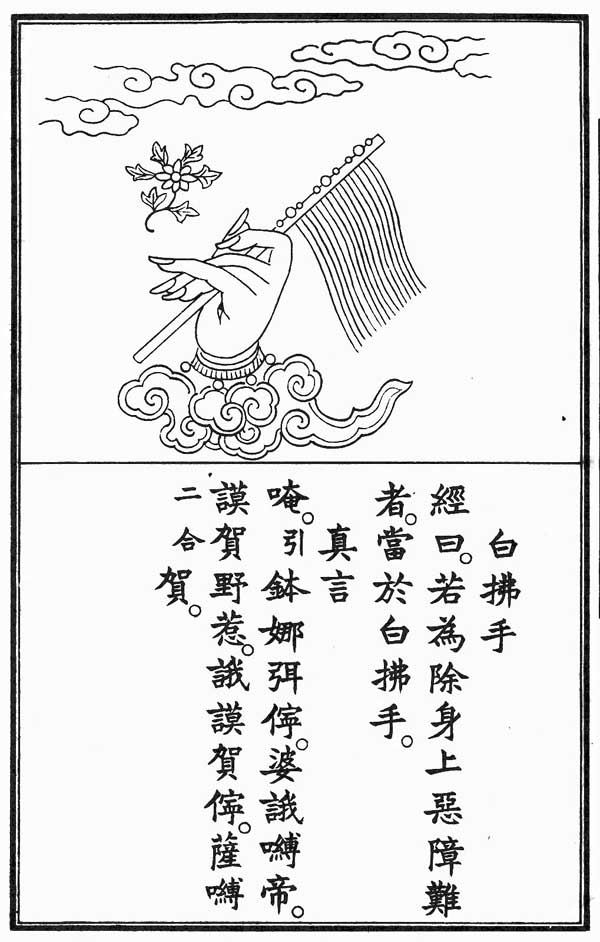 白拂手
經曰。若為除身上惡障難
者。當於白拂手。
真言
唵。引鉢娜弭儜。婆誐嚩帝。
謨賀野惹。誐謨賀儜。薩嚩
二合賀。